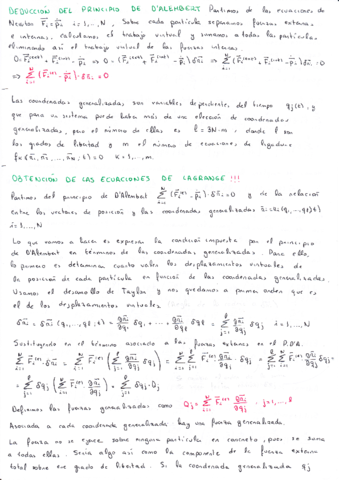 DEDUCCIÓN DEL PRINCIPIO DE D'ALEMBERT Partimos de las ecuaciones de
Newton F̄ᵢ = ṗ̄ᵢ i=1,..,N. Sobre cada partícula separamos fuerzas externas
e internas. Calculamos el trabajo virtual y sumamos a todas las partículas,
eliminando así el trabajo virtual de las fuerzas internas
⇒ Σ (F̄ᵢ⁽ᵉˣᵗ⁾ - ṗ̄ᵢ)·δr̄ᵢ = 0
Las coordenadas generalizadas son variables dependientes del tiempo qⱼ(t), y
que para un sistema puede haber más de una elección de coordenadas
generalizadas, pero el número de ellas es l = 3N-m, donde l son
los grados de libertad y m el número de ecuaciones de ligadura
fₖ(r̄₁, r̄₂, ..., r̄_N; t) = 0 k=1,..,m
OBTENCIÓN DE LAS ECUACIONES DE LAGRANGE !!!
Partimos del principio de D'Alembert Σ (F̄ᵢ⁽ᵉ⁾ - ṗ̄ᵢ)·δr̄ᵢ = 0 y de la relación
entre los vectores de posición y las coordenadas generalizadas r̄ᵢ = r̄ᵢ(q₁,..,qₗ; t)
i=1,..,N
Lo que vamos a hacer es expresar la condición impuesta por el principio
de D'Alembert en términos de las coordenadas generalizadas. Para ello,
lo primero es determinar cuánto valen los desplazamientos virtuales de
la posición de cada partícula en función de las coordenadas generalizadas.
Usamos el desarrollo de Taylor y nos quedamos a primer orden que es
el de los desplazamientos virtuales
δr̄ᵢ = δr̄ᵢ(q₁,..,qₗ; t) = ∂r̄ᵢ/∂q₁ δq₁ + ... + ∂r̄ᵢ/∂qₗ δqₗ = Σ ∂r̄ᵢ/∂qⱼ δqⱼ i=1,..,N
Sustituyendo en el término asociado a las fuerzas externas en el P.D'A.
Σ F̄ᵢ⁽ᵉ⁾·δr̄ᵢ = Σ F̄ᵢ⁽ᵉ⁾·(Σ ∂r̄ᵢ/∂qⱼ δqⱼ) = Σ Σ F̄ᵢ⁽ᵉ⁾·∂r̄ᵢ/∂qⱼ δqⱼ =
= Σ δqⱼ (Σ F̄ᵢ⁽ᵉ⁾·∂r̄ᵢ/∂qⱼ) = Σ δqⱼ·Qⱼ
Definimos las fuerzas generalizadas como Qⱼ = Σ F̄ᵢ⁽ᵉ⁾·∂r̄ᵢ/∂qⱼ j=1,..,l
Asociada a cada coordenada generalizada hay una fuerza generalizada.
La fuerza no se ejerce sobre ninguna partícula en concreto, pues se suma
a todas ellas. Sería algo así como la componente de la fuerza externa
total sobre ese grado de libertad. Si la coordenada generalizada qⱼ